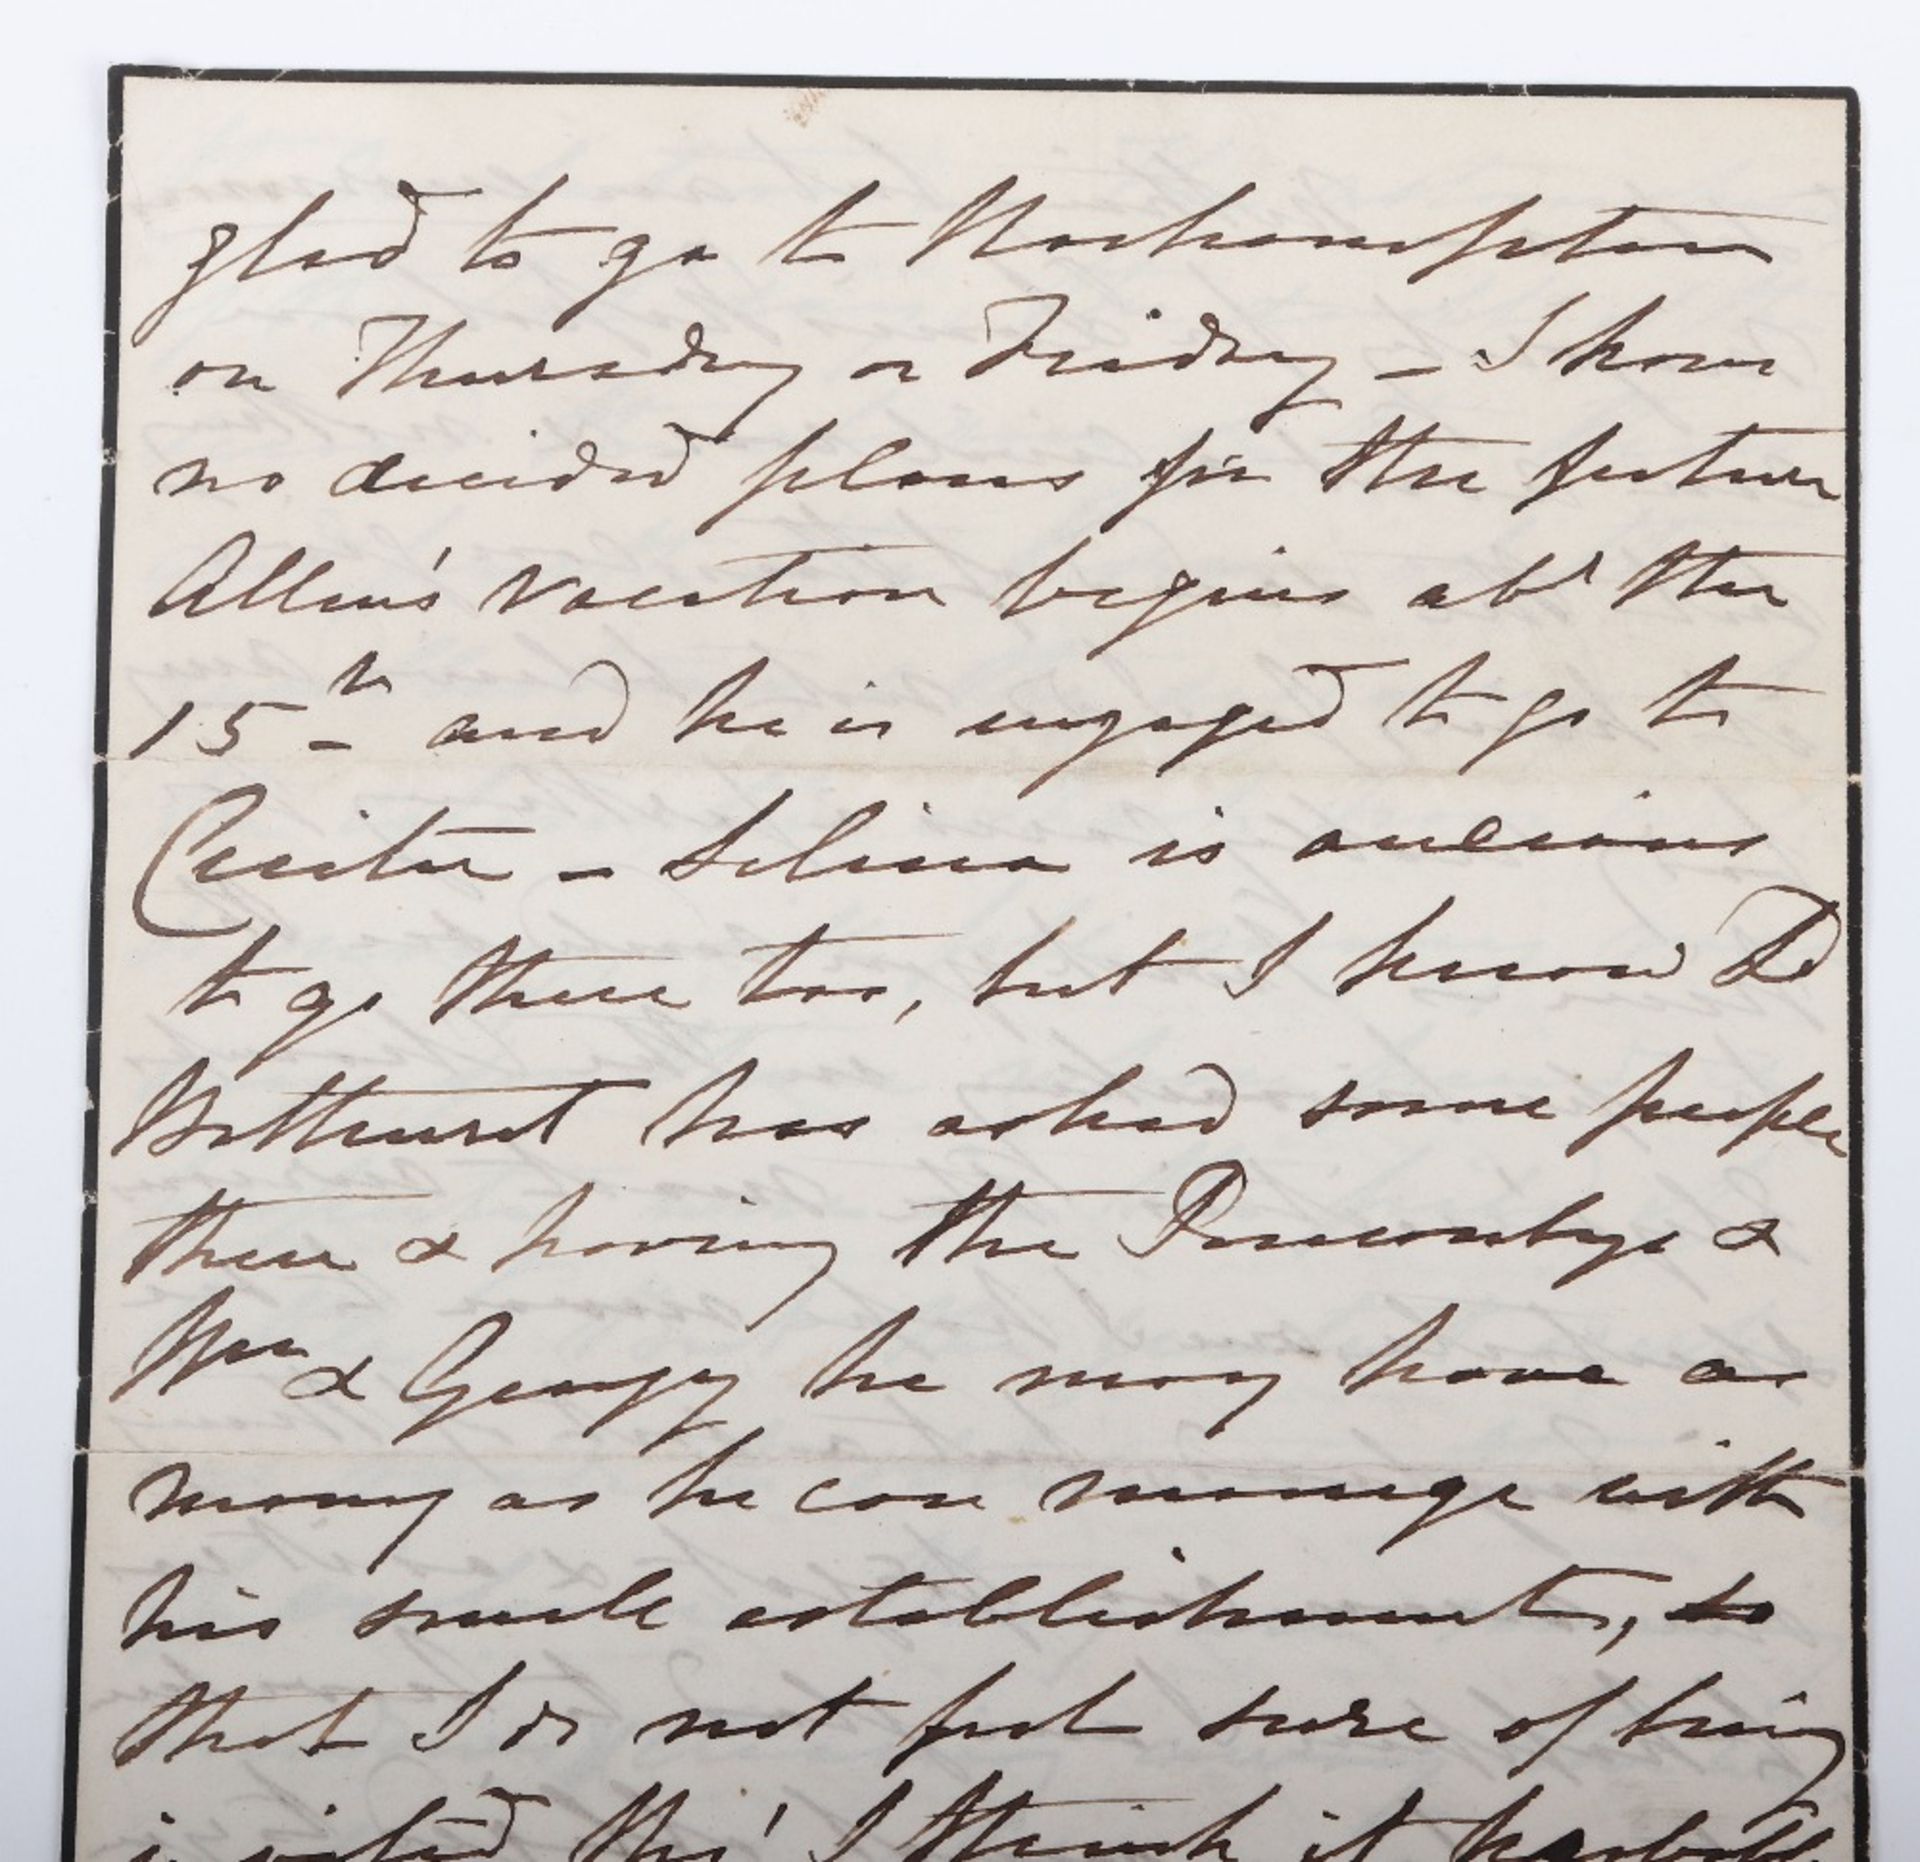 glad to go to Northampton
on Thursday or Friday – I have
no decided plans for the future
Allen's vacation begins abt the
15th and he is engaged to go to
Cirencester – Selina is anxious
to go there too, but I know Ld
Bathurst has asked some people
there & having the Ponsonbys &
Wm & Georgy he may have as
many as he can manage with
his small establishment, so
that I do not feel sure of being
invited tho' I think it probable